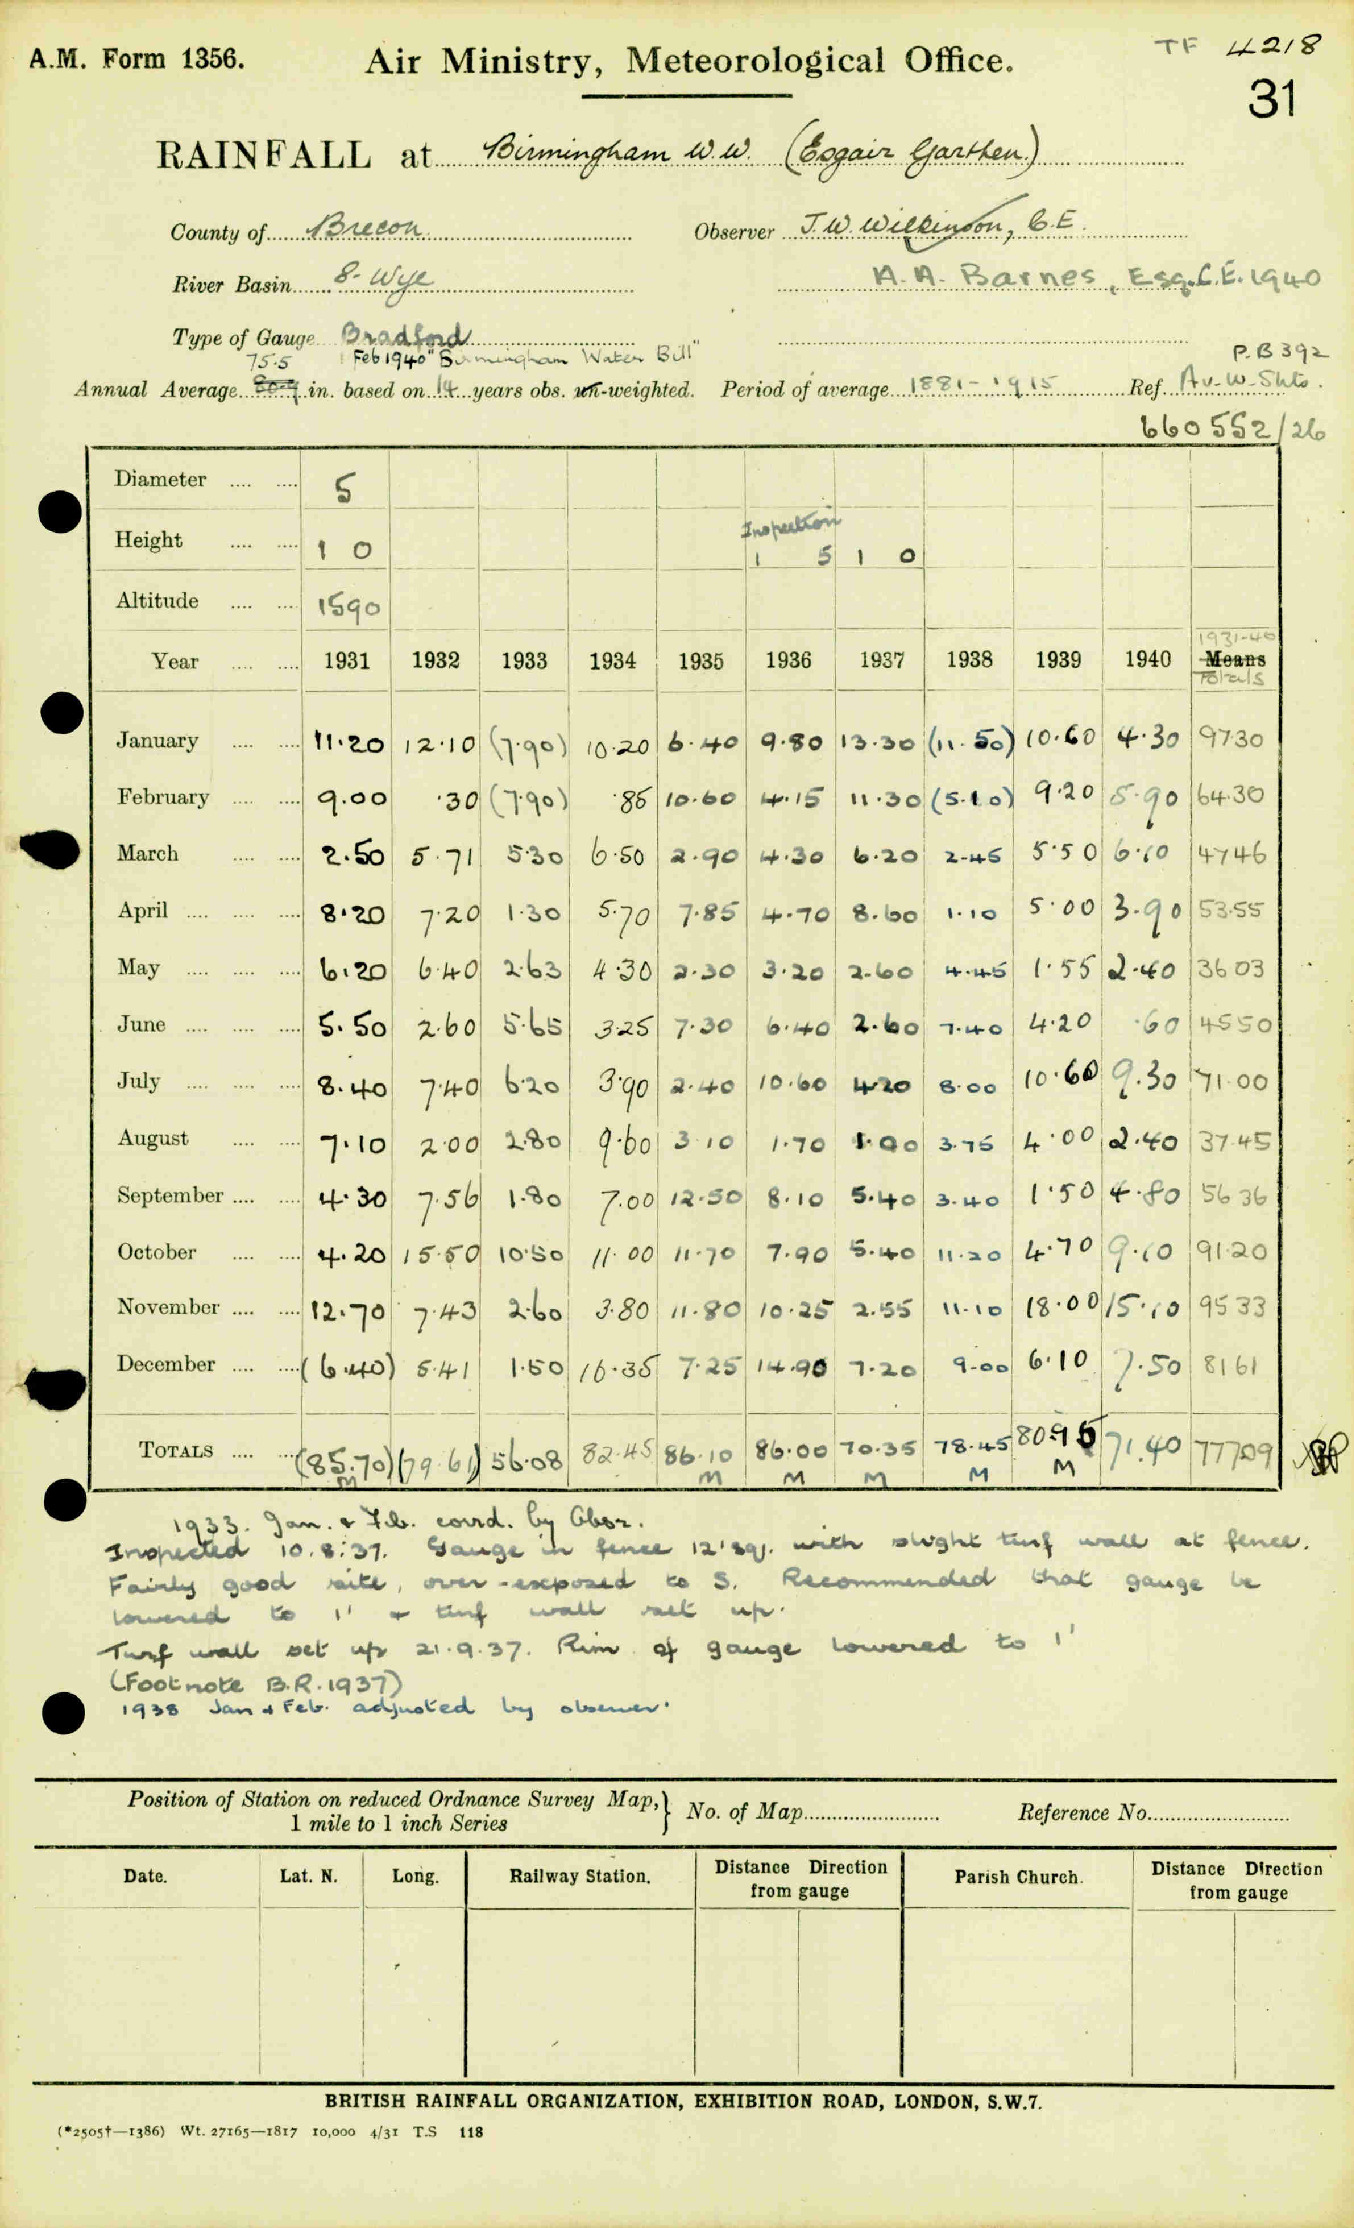 TF 4218
A.M. Form 1356. Air Ministry, Meteorological Office.
31
RAINFALL at Birmingham W.W. (Esgair Garthen)
County of Brecon Observer J.W. Wilkinson, C.E.
River Basin 8-Wye A.A. Barnes, Esq. C.E. 1940
Type of Gauge Bradford
75.5 Feb 1940 "Birmingham Water Bill" P.B 392
Annual Average 80.9 in. based on 14 years obs. un-weighted. Period of average 1881-1915 Ref. Av-W-Shts.
660552/26
Diameter .... .... 5
Inspection
Height .... .... 1 0 1 5 1 0
Altitude .... .... 1590
1931-40
Year .... .... 1931 1932 1933 1934 1935 1936 1937 1938 1939 1940 Means
Totals
January .... .... 11.20 12.10 (7.90) 10.20 6.40 9.80 13.30 (11.50) 10.60 4.30 97.30
February .... .... 9.00 .30 (7.90) .85 10.60 4.15 11.30 (5.10) 9.20 5.90 64.30
March .... .... 2.50 5.71 5.30 6.50 2.90 4.30 6.20 2.45 5.50 6.10 47.46
April .... .... .... 8.20 7.20 1.30 5.70 7.85 4.70 8.60 1.10 5.00 3.90 53.55
May .... .... .... 6.20 6.40 2.63 4.30 2.30 3.20 2.60 4.45 1.55 2.40 36 03
June .... .... .... 5.50 2.60 5.65 3.25 7.30 6.40 2.60 7.40 4.20 .60 45 50
July .... .... .... 8.40 7.40 6.20 3.90 2.40 10.60 4.20 8.00 10.60 9.30 71.00
August .... .... 7.10 2.00 2.80 9.60 3.10 1.70 1.00 3.75 4.00 2.40 37.45
September .... .... 4.30 7.56 1.80 7.00 12.50 8.10 5.40 3.40 1.50 4.80 56 36
October .... .... 4.20 15.50 10.50 11.00 11.70 7.90 5.40 11.20 4.70 9.10 91.20
November .... .... 12.70 7.43 2.60 3.80 11.80 10.25 2.55 11.10 18.00 15.10 95 33
December .... .... (6.40) 5.41 1.50 16.35 7.25 14.90 7.20 9.00 6.10 7.50 81 61
TOTALS .... .... (85.70) (79.61) 56.08 82.45 86.10 86.00 70.35 78.45 80.95 71.40 777.09
M M M M M M
1933. Jan. & Feb. corrd. by Obsr.
Inspected 10.8.37. Gauge in fence 12' sq. with slight turf wall at fence.
Fairly good site, over-exposed to S. Recommended that gauge be
lowered to 1' & turf wall set up.
Turf wall set up 21.9.37. Rim of gauge lowered to 1'
(Footnote B.R. 1937)
1938 Jan & Feb. adjusted by observer.
Position of Station on reduced Ordnance Survey Map,} No. of Map Reference No.
1 mile to 1 inch Series
Date. Lat. N. Long. Railway Station. Distance Direction from gauge Parish Church. Distance Direction from gauge
BRITISH RAINFALL ORGANIZATION, EXHIBITION ROAD, LONDON, S.W.7.
(*2505†—1386) Wt. 27165—1817 10,000 4/31 T.S 118